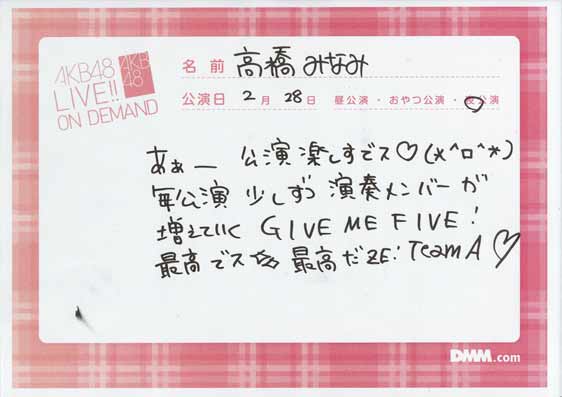 AKB48
LIVE!!
ON DEMAND
AKB
48
名前 高橋みなみ
公演日 2月 28日 昼公演・おやつ公演・夜公演
あぁー 公演 楽しすでス♡(*^o^*)
毎公演 少しずつ 演奏メンバーが
増えていく GIVE ME FIVE!
最高でス 最高だZE! TeamA♡
DMM.com